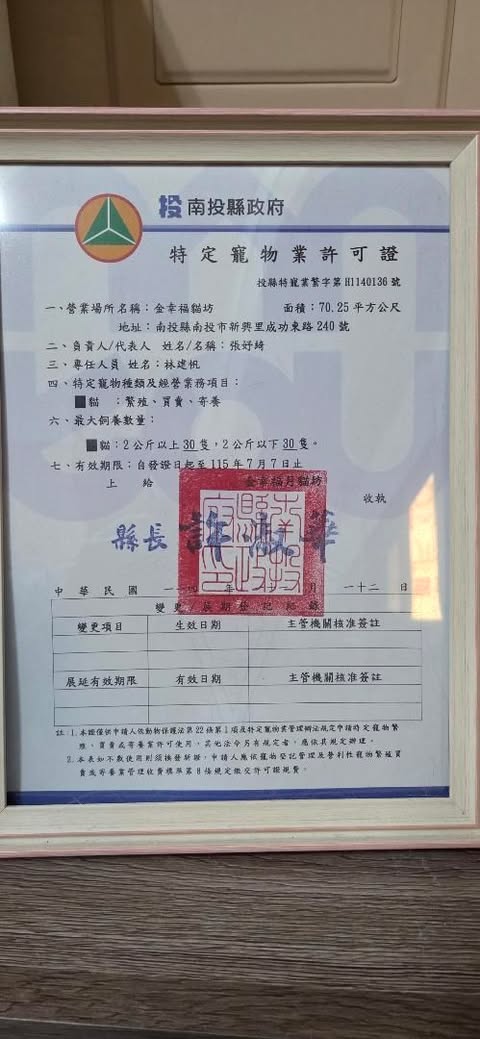 投 南投縣政府
特定寵物業許可證
投縣特寵業繁字第 H1140136 號
一、營業場所名稱：金幸福貓坊 面積：70.25 平方公尺
地址：南投縣南投市新興里成功東路 240 號
二、負責人/代表人 姓名/名稱：張妤綺
三、專任人員 姓名：林建帆
四、特定寵物種類及經營業務項目：
■貓 ：繁殖、買賣、寄養
六、最大飼養數量：
■貓：2 公斤以上 30 隻，2 公斤以下 30 隻。
七、有效期限：自發證日起至 115 年 7 月 7 日止
上 給
收執
縣長 許淑華
中 華 民 國 一一四 年 月 一十二 日
變更/展期登記紀錄
變更項目 生效日期 主管機關核准簽註
展延有效期限 有效日期 主管機關核准簽註
註：1.本證僅供申請人依動物保護法第 22 條第 1 項及特定寵物業管理辦法規定申請特定寵物繁
殖、買賣或寄養業許可使用，其他法令另有規定者，應依其規定辦理。
2.本表如不敷使用則須換發新證，申請人應依寵物登記管理及營利性寵物繁殖買
賣或寄養業管理收費標準第 8 條規定繳交許可證規費。